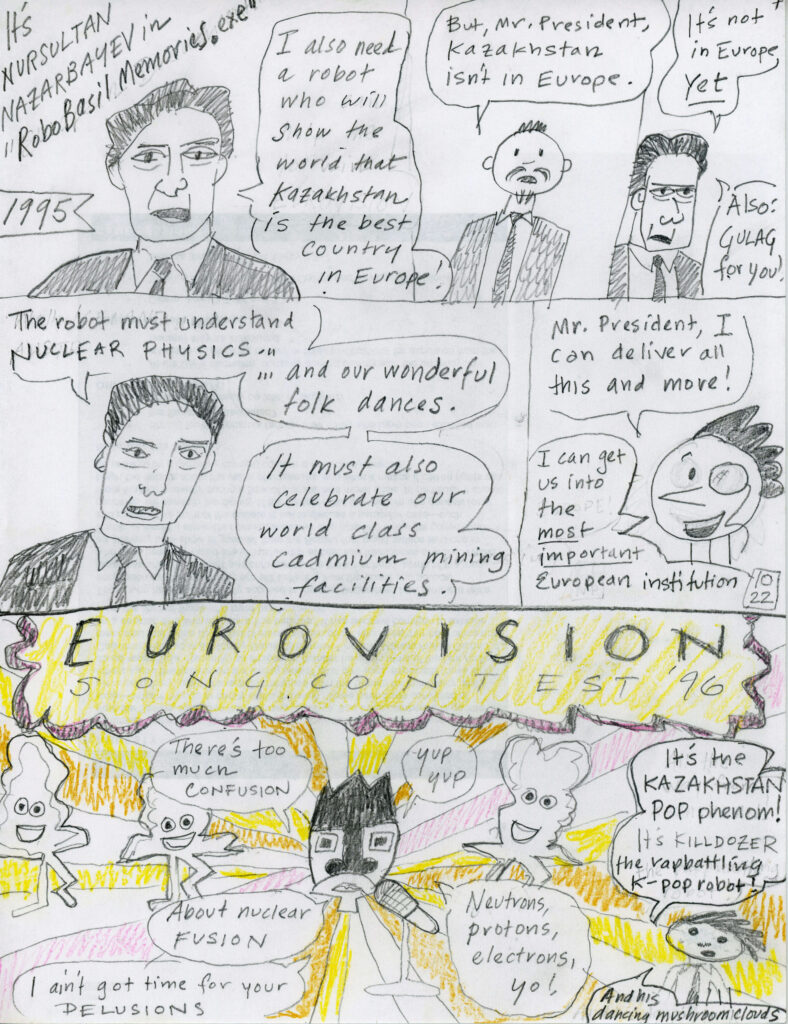 It's
NURSULTAN
NAZARBAYEV in
"RoboBasil Memories.exe"
1995
I also need
a robot
who will
show the
world that
Kazakhstan
is the best
country
in Europe!
But, Mr. President,
Kazakhstan
isn't in Europe.
It's not
in Europe
yet
Also:
GULAG
for you!
The robot must understand
NUCLEAR PHYSICS...
... and our wonderful
folk dances.
It must also
celebrate our
world class
cadmium mining
facilities.
Mr. President, I
can deliver all
this and more!
I can get
us into
the
most
important
European institution
10
22
EUROVISION
SONG CONTEST '96
There's too
much
CONFUSION
yup
yup
About nuclear
FUSION
I ain't got time for your
DELUSIONS
Neutrons,
protons,
electrons,
yo!
It's the
KAZAKHSTAN
POP phenom!
It's KILLDOZER
the rapbattling
K-pop robot!
And his
dancing mushroom clouds